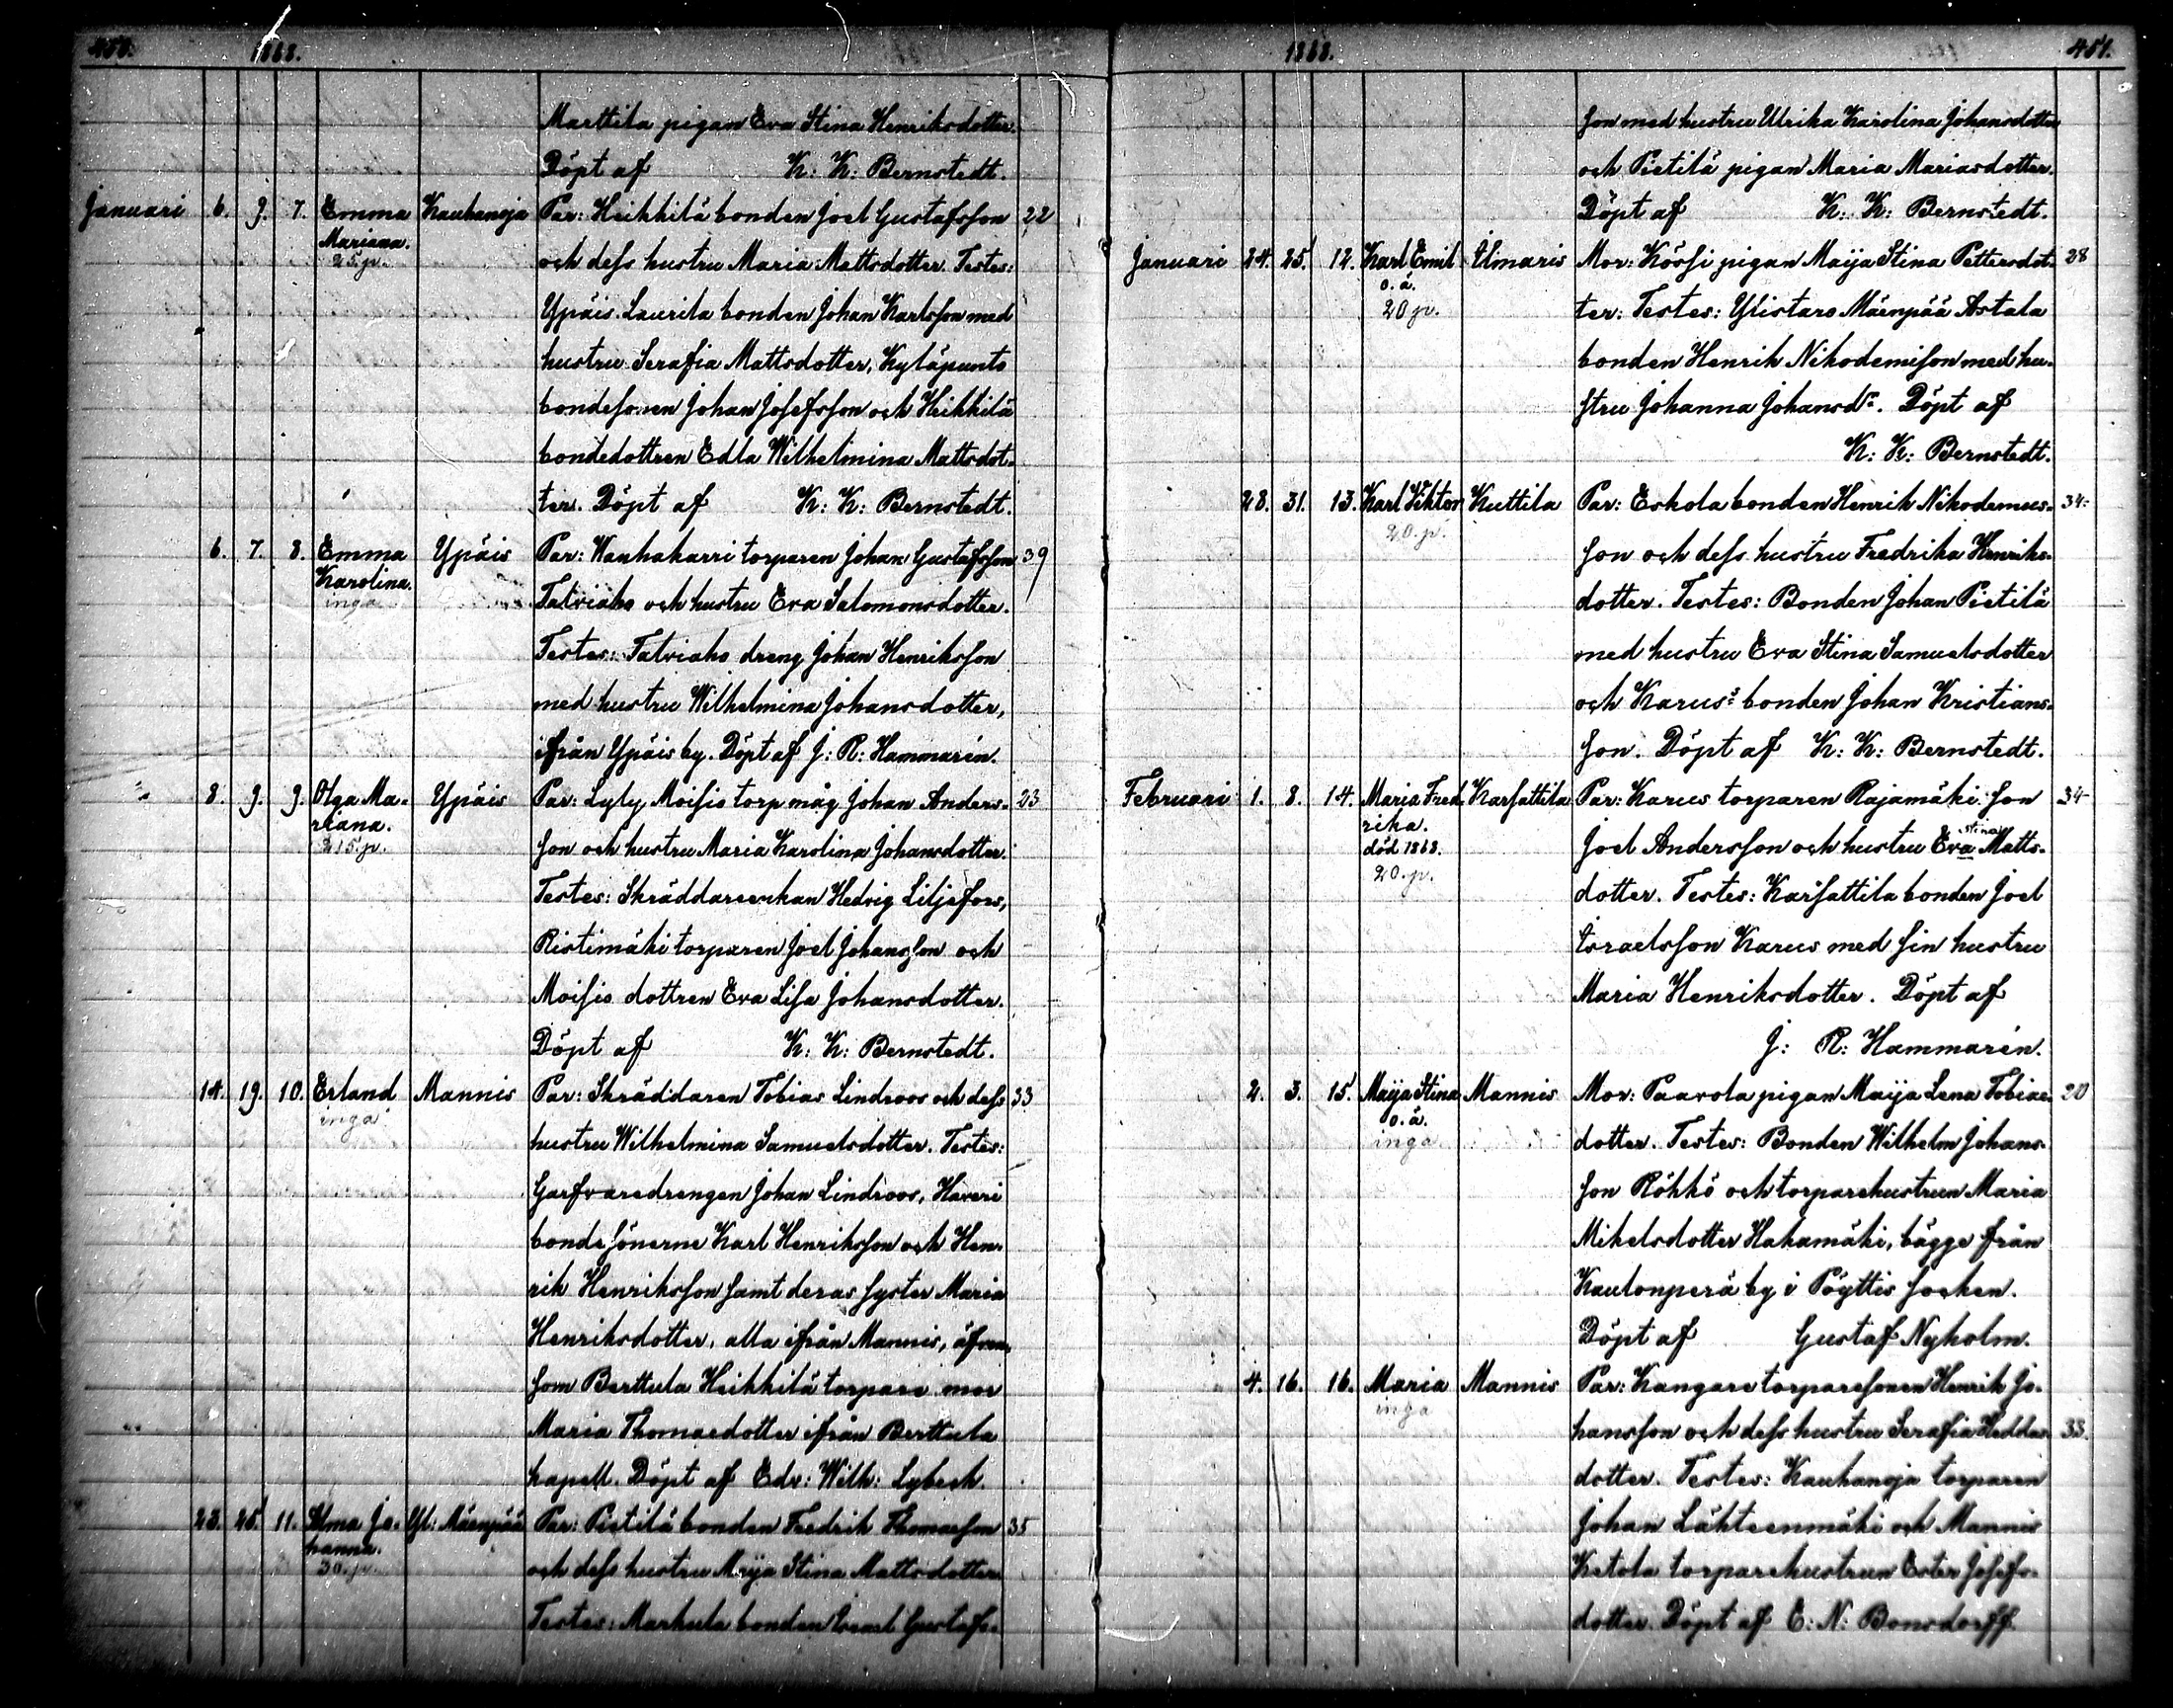 450. 1868.
Marttila pigan Eva Stina Henriksdotter.
Döpt af K: K: Bernstedt.
Januari 6. 9. 7. Emma Kauhanoja Par: Heikkilä bonden Joel Gustafsson 22
Mariana. och dess hustru Maria Mattsdotter. Testes:
25 p.
Ypäis Laurila bonden Johan Karlsson med
hustru Serafia Mattsdotter, Kyläpunto
bondesonen Johan Josefsson och Heikkilä
bondedottren Edla Wilhelmina Mattsdot-
ter. Döpt af K: K: Bernstedt.
6. 7. 8. Emma Ypäis Par: Wanhakarri torparen Johan Gustafsson 39
Karolina. Talviaho och hustru Eva Salomonsdotter.
inga
Testes: Talviaho dreng Johan Henriksson
med hustru Wilhelmina Johansdotter,
ifrån Ypäis by. Döpt af J: R: Hammarén.
8. 9. 9. Olga Ma- Ypäis Par: Lyly Moisio torp måg Johan Anders- 23
riana. son och hustru Maria Karolina Johansdotter.
Testes: Skräddareenkan Hedvig Liljefors,
Ristimäki torparen Joel Johansson och
Moisio dottren Eva Lisa Johansdotter.
Döpt af K: K: Bernstedt.
14. 19. 10. Erland Mannis Par: Skräddaren Tobias Lindroos och dess 33
inga hustru Wilhelmina Samuelsdotter. Testes:
Garfvaredrengen Johan Lindroos, Haveri
bondesönerne Karl Henriksson och Hen-
rik Henriksson samt deras syster Maria
Henriksdotter, alla ifrån Mannis, äfven
som Berttula Heikkilä torpare mor
Maria Thomasdotter ifrån Berttula
kapell. Döpt af Edv: Wilh: Lybeck.
23. 25. 11. Alma Jo- Yl: Mäenpää Par: Pietilä bonden Fredrik Thomasson 35
hanna. och dess hustru Maja Stina Mattsdotter
30. p.
Testes: Markula bonden Israel Gustafs-
1868. 451.
son med hustru Ulrika Karolina Johansdotter
och Pietilä pigan Maria Mariasdotter.
Döpt af K: K: Bernstedt.
Januari 24. 25. 12. Karl Emil Ilmaris Mor: Köörsi pigan Maija Stina Pettersdot- 28
o. ä.
20 p. ter: Testes: Ylistaro Mäenpää Astala
bonden Henrik Nikodemisson med hu-
stru Johanna Johansdr. Döpt af
K: K: Bernstedt.
28. 31. 13. Karl Viktor Kuttila Par: Eskola bonden Henrik Nikodemus- 34
20. p. son och dess hustru Fredrika Henriks-
dotter. Testes: Bonden Johan Pietilä
med hustru Eva Stina Samuelsdotter
och Karus: bonden Johan Kristians-
son. Döpt af K: K: Bernstedt.
Februari 1. 8. 14. Maria Fred Karsattila Par: Karus torparen Rajamäki son 34
rika. Joel Andersson och hustru Eva stina Matts-
död 1868.
20. p. dotter. Testes: Karsattila bonden Joel
Israelsson Karus med sin hustru
Maria Henriksdotter. Döpt af
J: R: Hammarén.
2. 3. 15. Maija Stina Mannis Mor: Paavola pigan Maija Lena Tobias- 20
o. ä.
inga dotter. Testes: Bonden Wilhelm Johans-
son Rökkö och torparehustrun Maria
Mikelsdotter Hakamäki, bägge från
Kaulonperä by i Pöyttis socken.
Döpt af Gustaf Nyholm.
4. 16. 16. Maria Mannis Par: Kangare torparesonen Henrik Jo-
inga hansson och dess hustru Serafia Heddas- 33.
dotter. Testes: Kauhanoja torparen
Johan Lähteenmäki och Mannis
Ketola torparehustrun Ester Josefs-
dotter. Döpt af E: N: Bonsdorff.